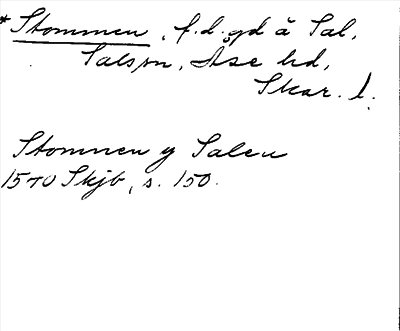 *Stommen, f.d. gd å Sal,
Sals sn, Åse hd,
Skar. l.
Stommen y Salen
1540 Skjb, s. 150.